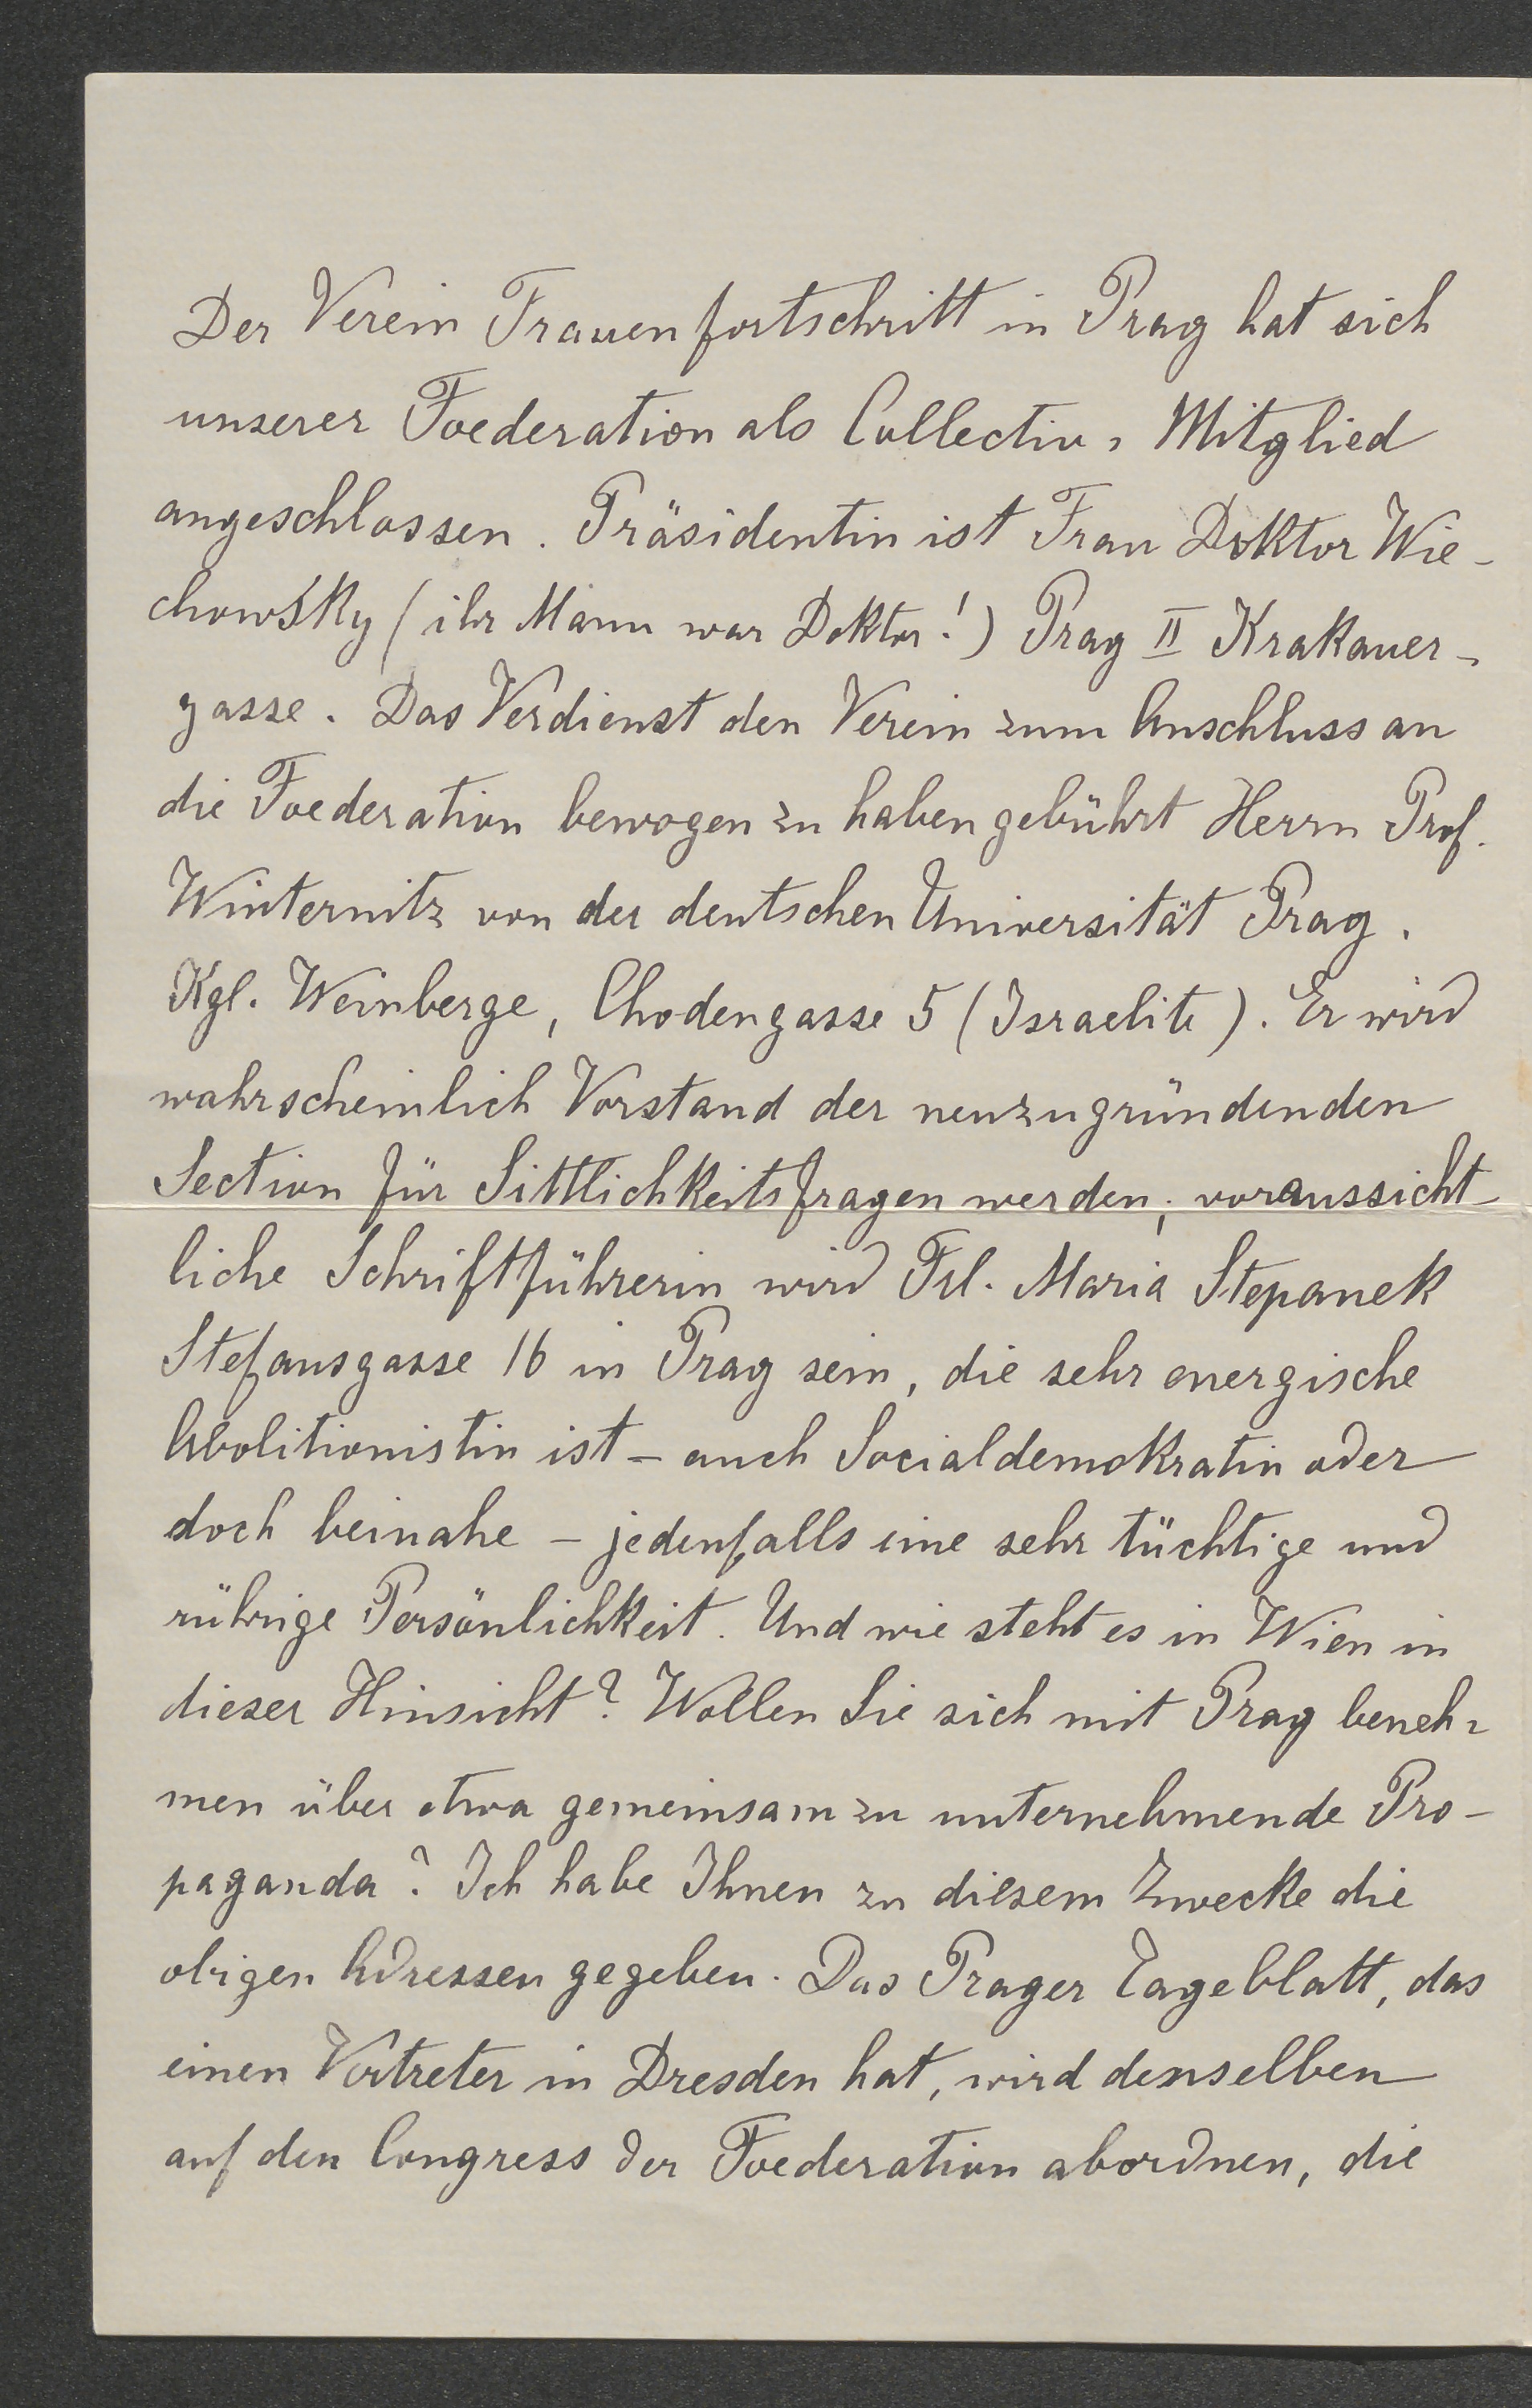 Der Verein Frauenfortschritt in Prag hat sich
unserer Foederation als Collectiv-Mitglied
angeschlossen. Präsidentin ist Frau Doktor Wie-
chowsky (ihr Mann war Doktor!) Prag II Krakauer-
gasse. Das Verdienst den Verein zum Anschluss an
die Foederation bewogen zu haben gebührt Herrn Prof.
Winternitz von der deutschen Universität Prag.
Kgl. Weinberge, Chodengasse 5 (Israelite). Er wird
wahrscheinlich Vorstand der neuzugründenden
Section für Sittlichkeitsfragen werden; voraussicht-
liche Schriftführerin wird Frl. Maria Stepanek
Stefansgasse 16 in Prag sein, die sehr energische
Abolitionistin ist – auch Socialdemokratin oder
doch beinahe – jedenfalls eine sehr tüchtige und
rührige Persönlichkeit. Und wie steht es in Wien in
dieser Hinsicht? Wollen Sie sich mit Prag beneh-
men über etwa gemeinsam zu unternehmende Pro-
paganda? Ich habe Ihnen zu diesem Zwecke die
obigen Adressen gegeben. Das Prager Tageblatt, das
einen Vertreter in Dresden hat, wird denselben
auf den Congress der Foederation abordnen, die